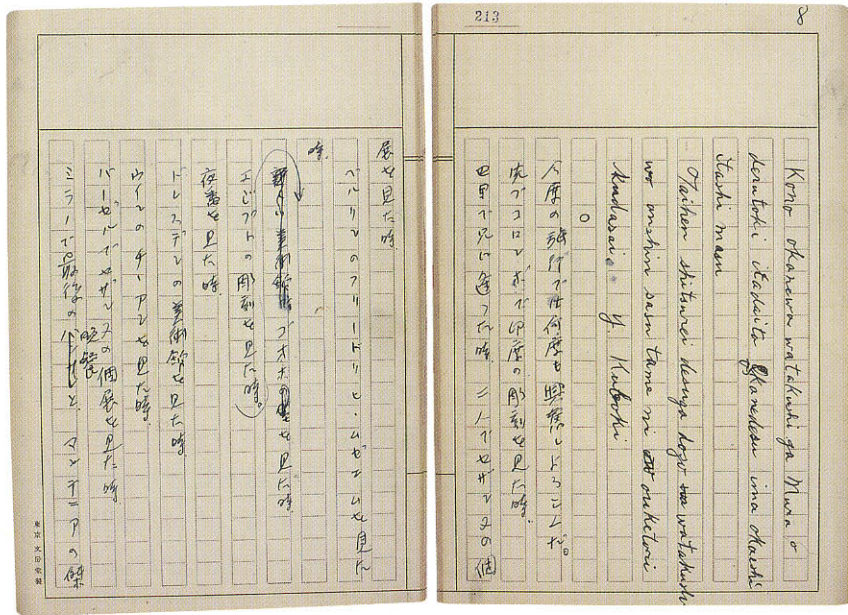 213
8
Kono okanewa watakushi ga Mura o
derutoki itadaita okanedesu ima okaeshi
itashi masu
Taihen shitsurei desuga dozo watakushi
wo anshin sasu tame ni ouketori
kudasai. Y. Kuboki
○
今度の旅行では何度も興奮しよろこんだ。
先づコロンボで印度の彫刻を見た時。
巴里で兄に逢った時 ニースでセザンヌの個
展を見た時。
ベルリンのフリードリヒ・ムゼエムを見た
時。
ゴオホの を見た時
エジプトの彫刻を見た時。
夜警を見た時
ドレスデンの美術館を見た時
ウインのチーアンを見た時
バーゼルでセザンヌの個展を見た時
ミラノで最後の晩餐と マンテニアの傑
東京文房堂製